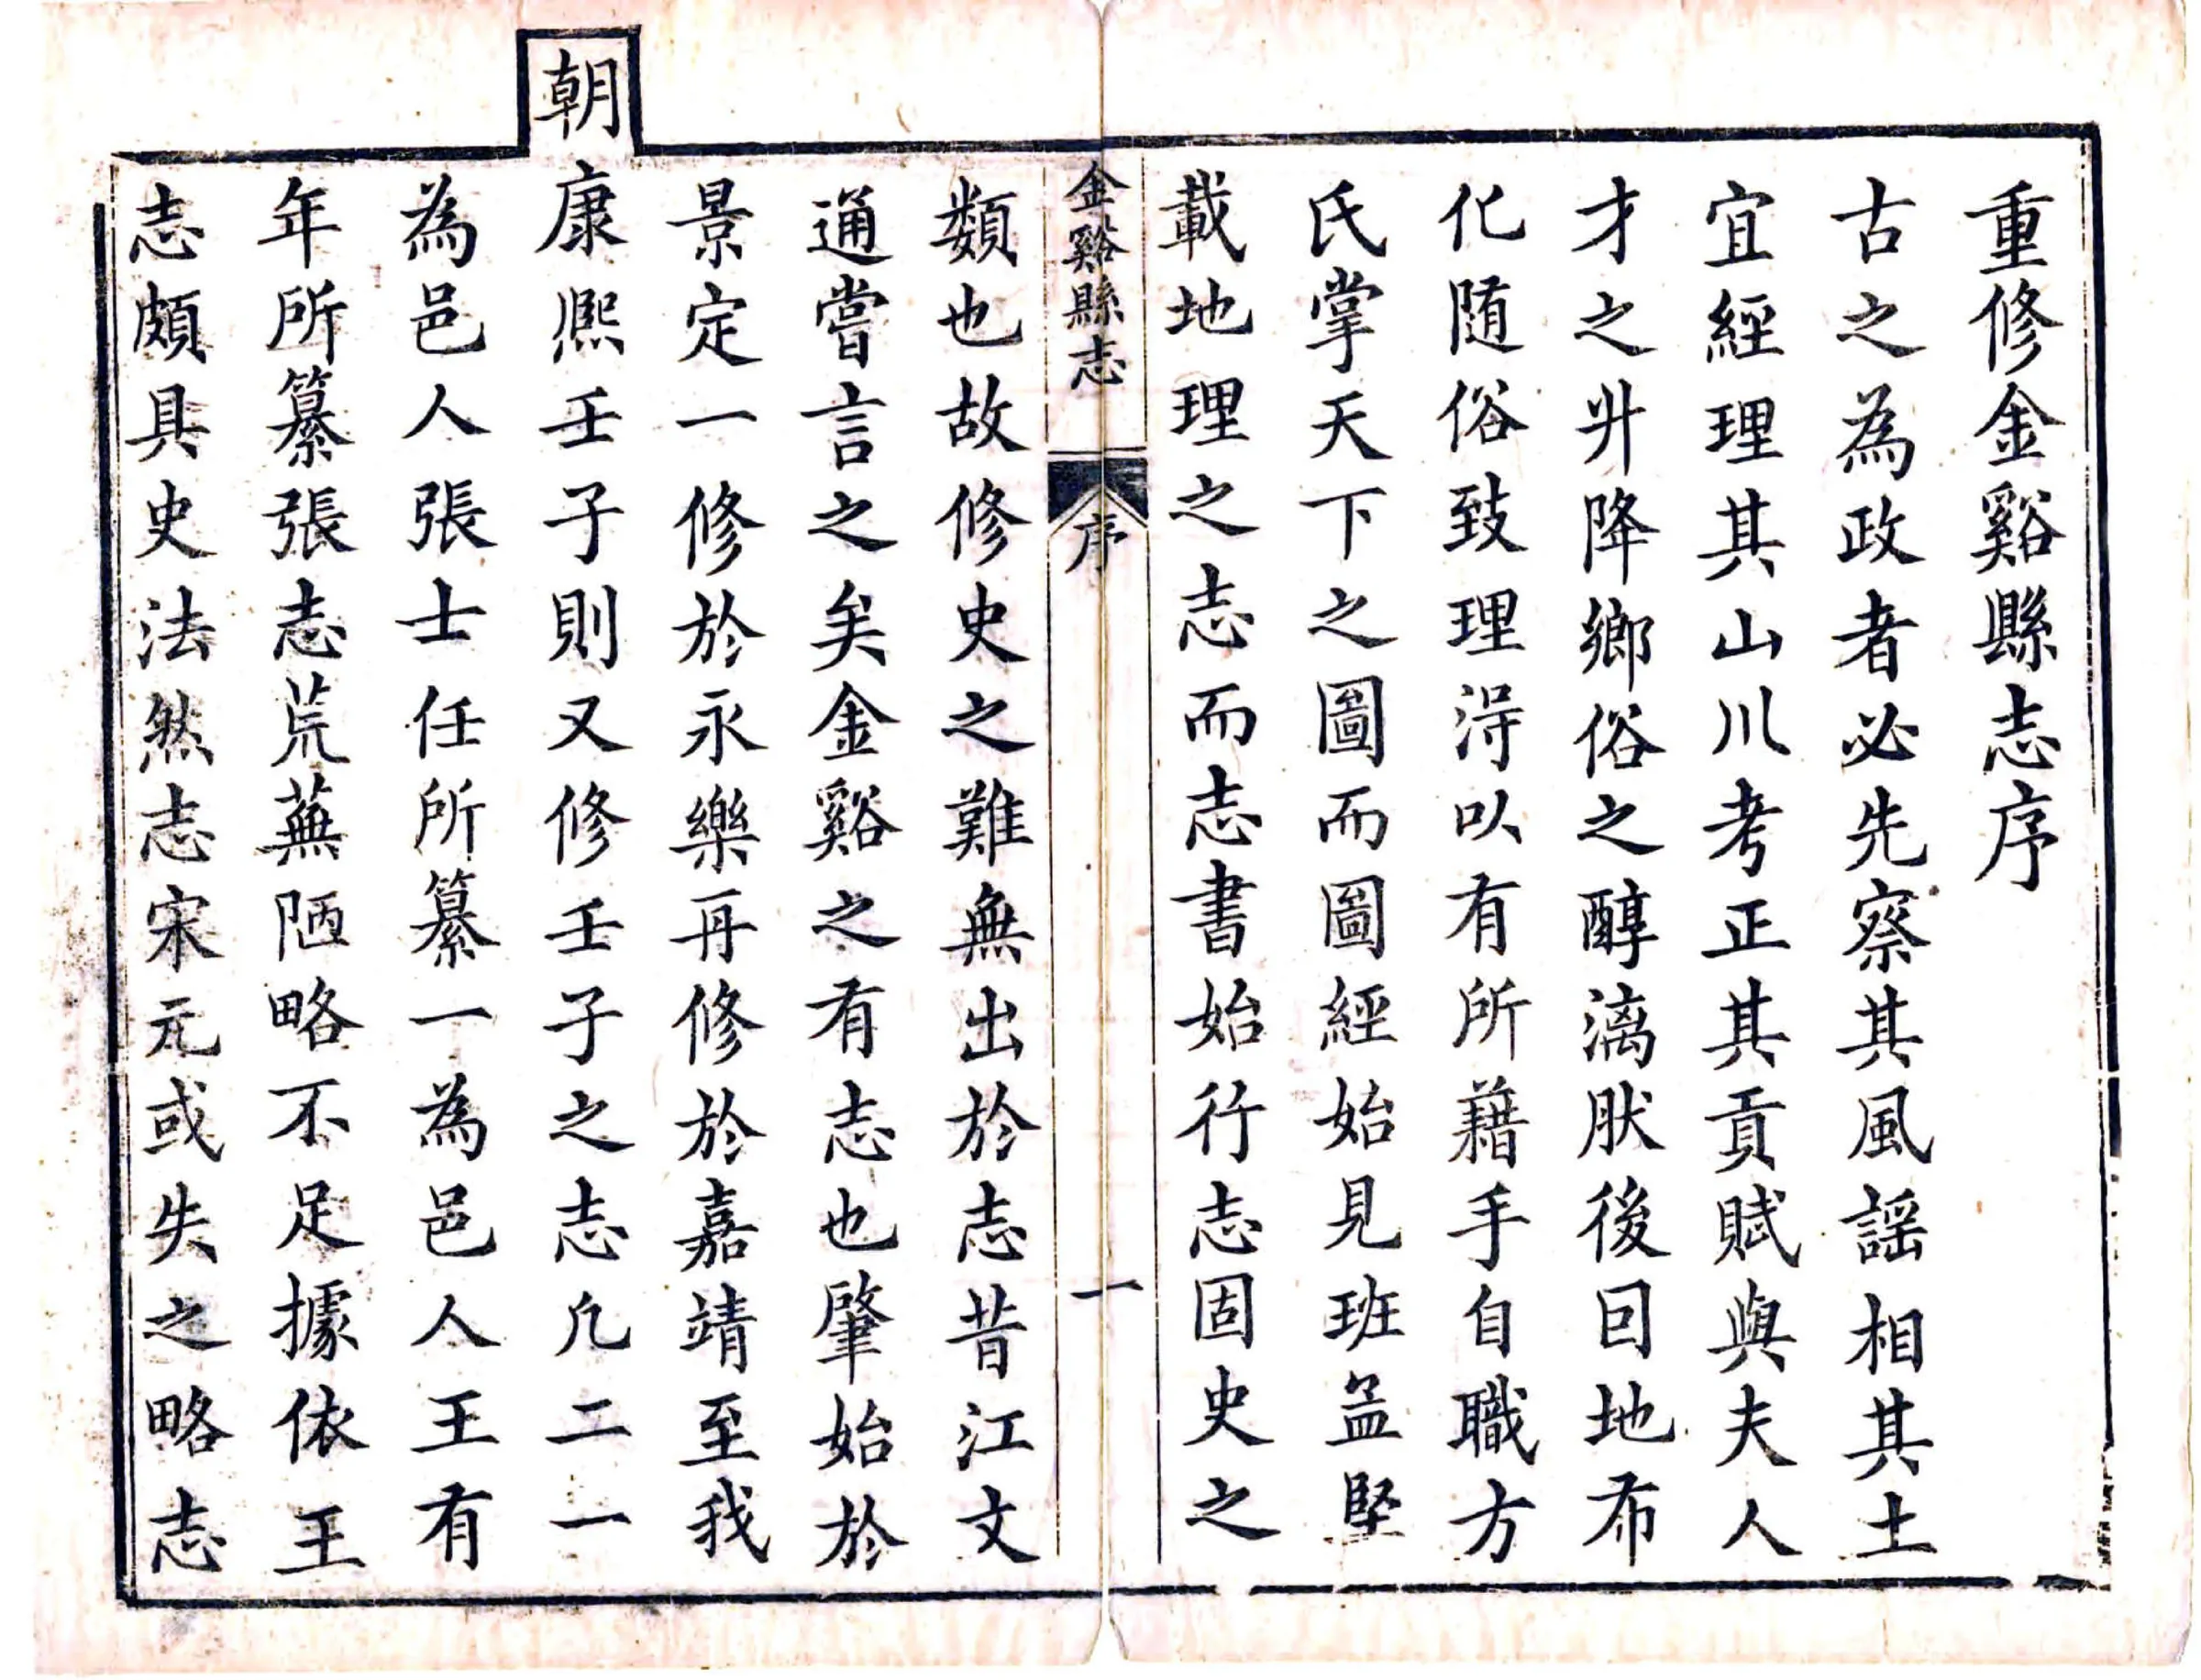 重修金谿縣志序
古之為政者必先察其風謡相其土
宜經理其山川考正其貢賦與夫人
才之升降鄉俗之醇漓肰後回地布
化随俗致理淂以有所藉手自職方
氏掌天下之圖而圖經始見班孟堅
載地理之志而志書始行志固史之
金谿縣志
序
一
類也故修史之難無出於志昔江文
通嘗言之矣金谿之有志也肇始於
景定一修於永樂再修於嘉靖至我
朝康熙壬子則又修壬子之志凢二一
為邑人張士任所纂一為邑人王有
年所纂張志荒蕪陋略不足據依王
志頗具史法然志宋元或失之略志